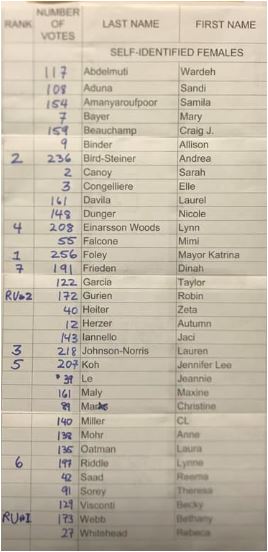 RANK NUMBER OF VOTES LAST NAME FIRST NAME
SELF-IDENTIFIED FEMALES
117 Abdelmuti Wardeh
108 Aduna Sandi
154 Amanyaroufpoor Samila
7 Bayer Mary
159 Beauchamp Craig J.
9 Binder Allison
2 236 Bird-Steiner Andrea
2 Canoy Sarah
3 Congelliere Elle
161 Davila Laurel
148 Dunger Nicole
4 208 Einarsson Woods Lynn
55 Falcone Mimi
1 256 Foley Mayor Katrina
7 191 Frieden Dinah
122 Garcia Taylor
RU#2 172 Gurien Robin
40 Heiter Zeta
12 Herzer Autumn
143 Iannello Jaci
3 218 Johnson-Norris Lauren
5 207 Koh Jennifer Lee
39 Le Jeannie
161 Maly Maxine
89 Christine
140 Miller CL
138 Mohr Anne
135 Oatman Laura
6 197 Riddle Lynne
42 Saad Reema
91 Sorey Theresa
129 Visconti Becky
RU#1 173 Webb Bethany
27 Whitehead Rebeca